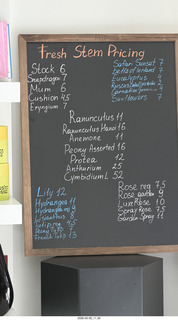 Fresh Stem Pricing
Stock 6
Snapdragon 7
Mum 6
Cushion 4.5
Eryngium 7
Safari Sunset 7
Bells of Ireland 7
Eucalyptus 4
Sunflowers 7
Ranunculus 11
Ranunculus Hanoi 16
Anemone 11
Peony Assorted 16
Protea 12
Anthurium 25
Cymbidium L 52
Lily 12
Hydrangea 11
Rose reg 7.5
Rose garden 9
Luxe Rose 10
Spray Rose 7.5
Garden Spray 11
French Tulip 13